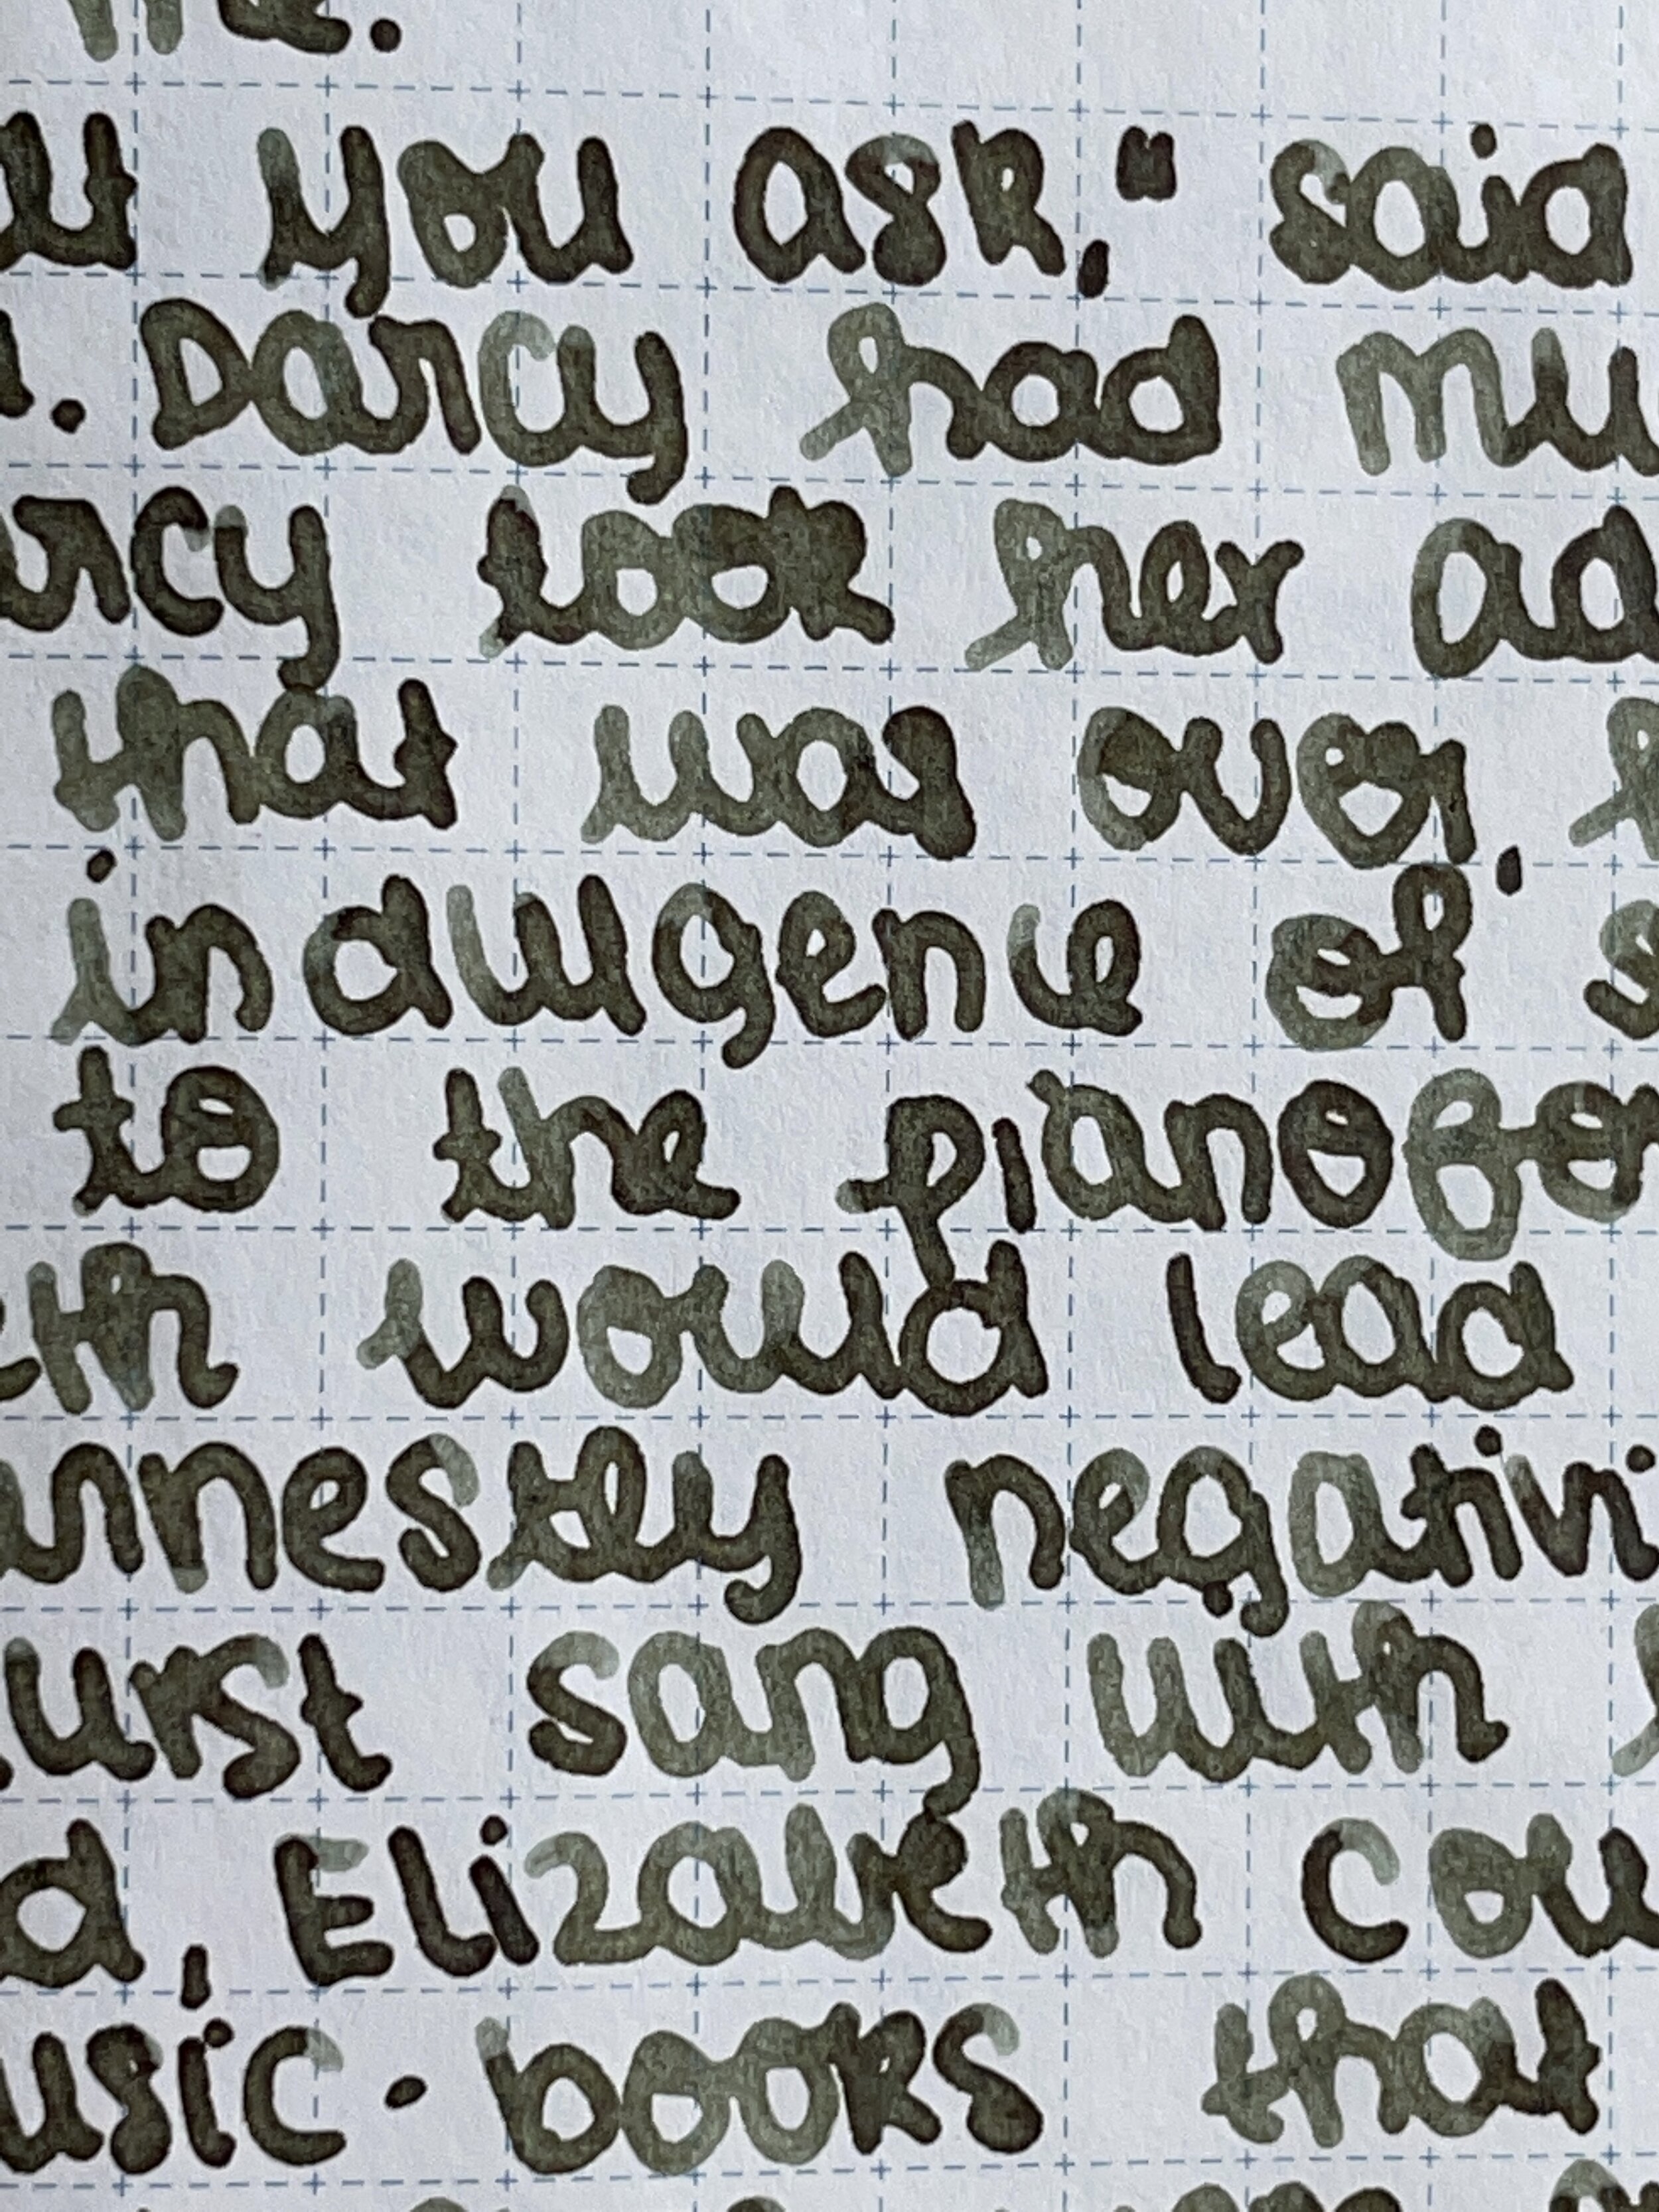 you ask," said
. Darcy had mu
rcy took her ad
that was over,
indulgence of s
to the pianofor
eth would lead
arnestly negativi
urst sang with
d, Elizabeth cou
usic-books that